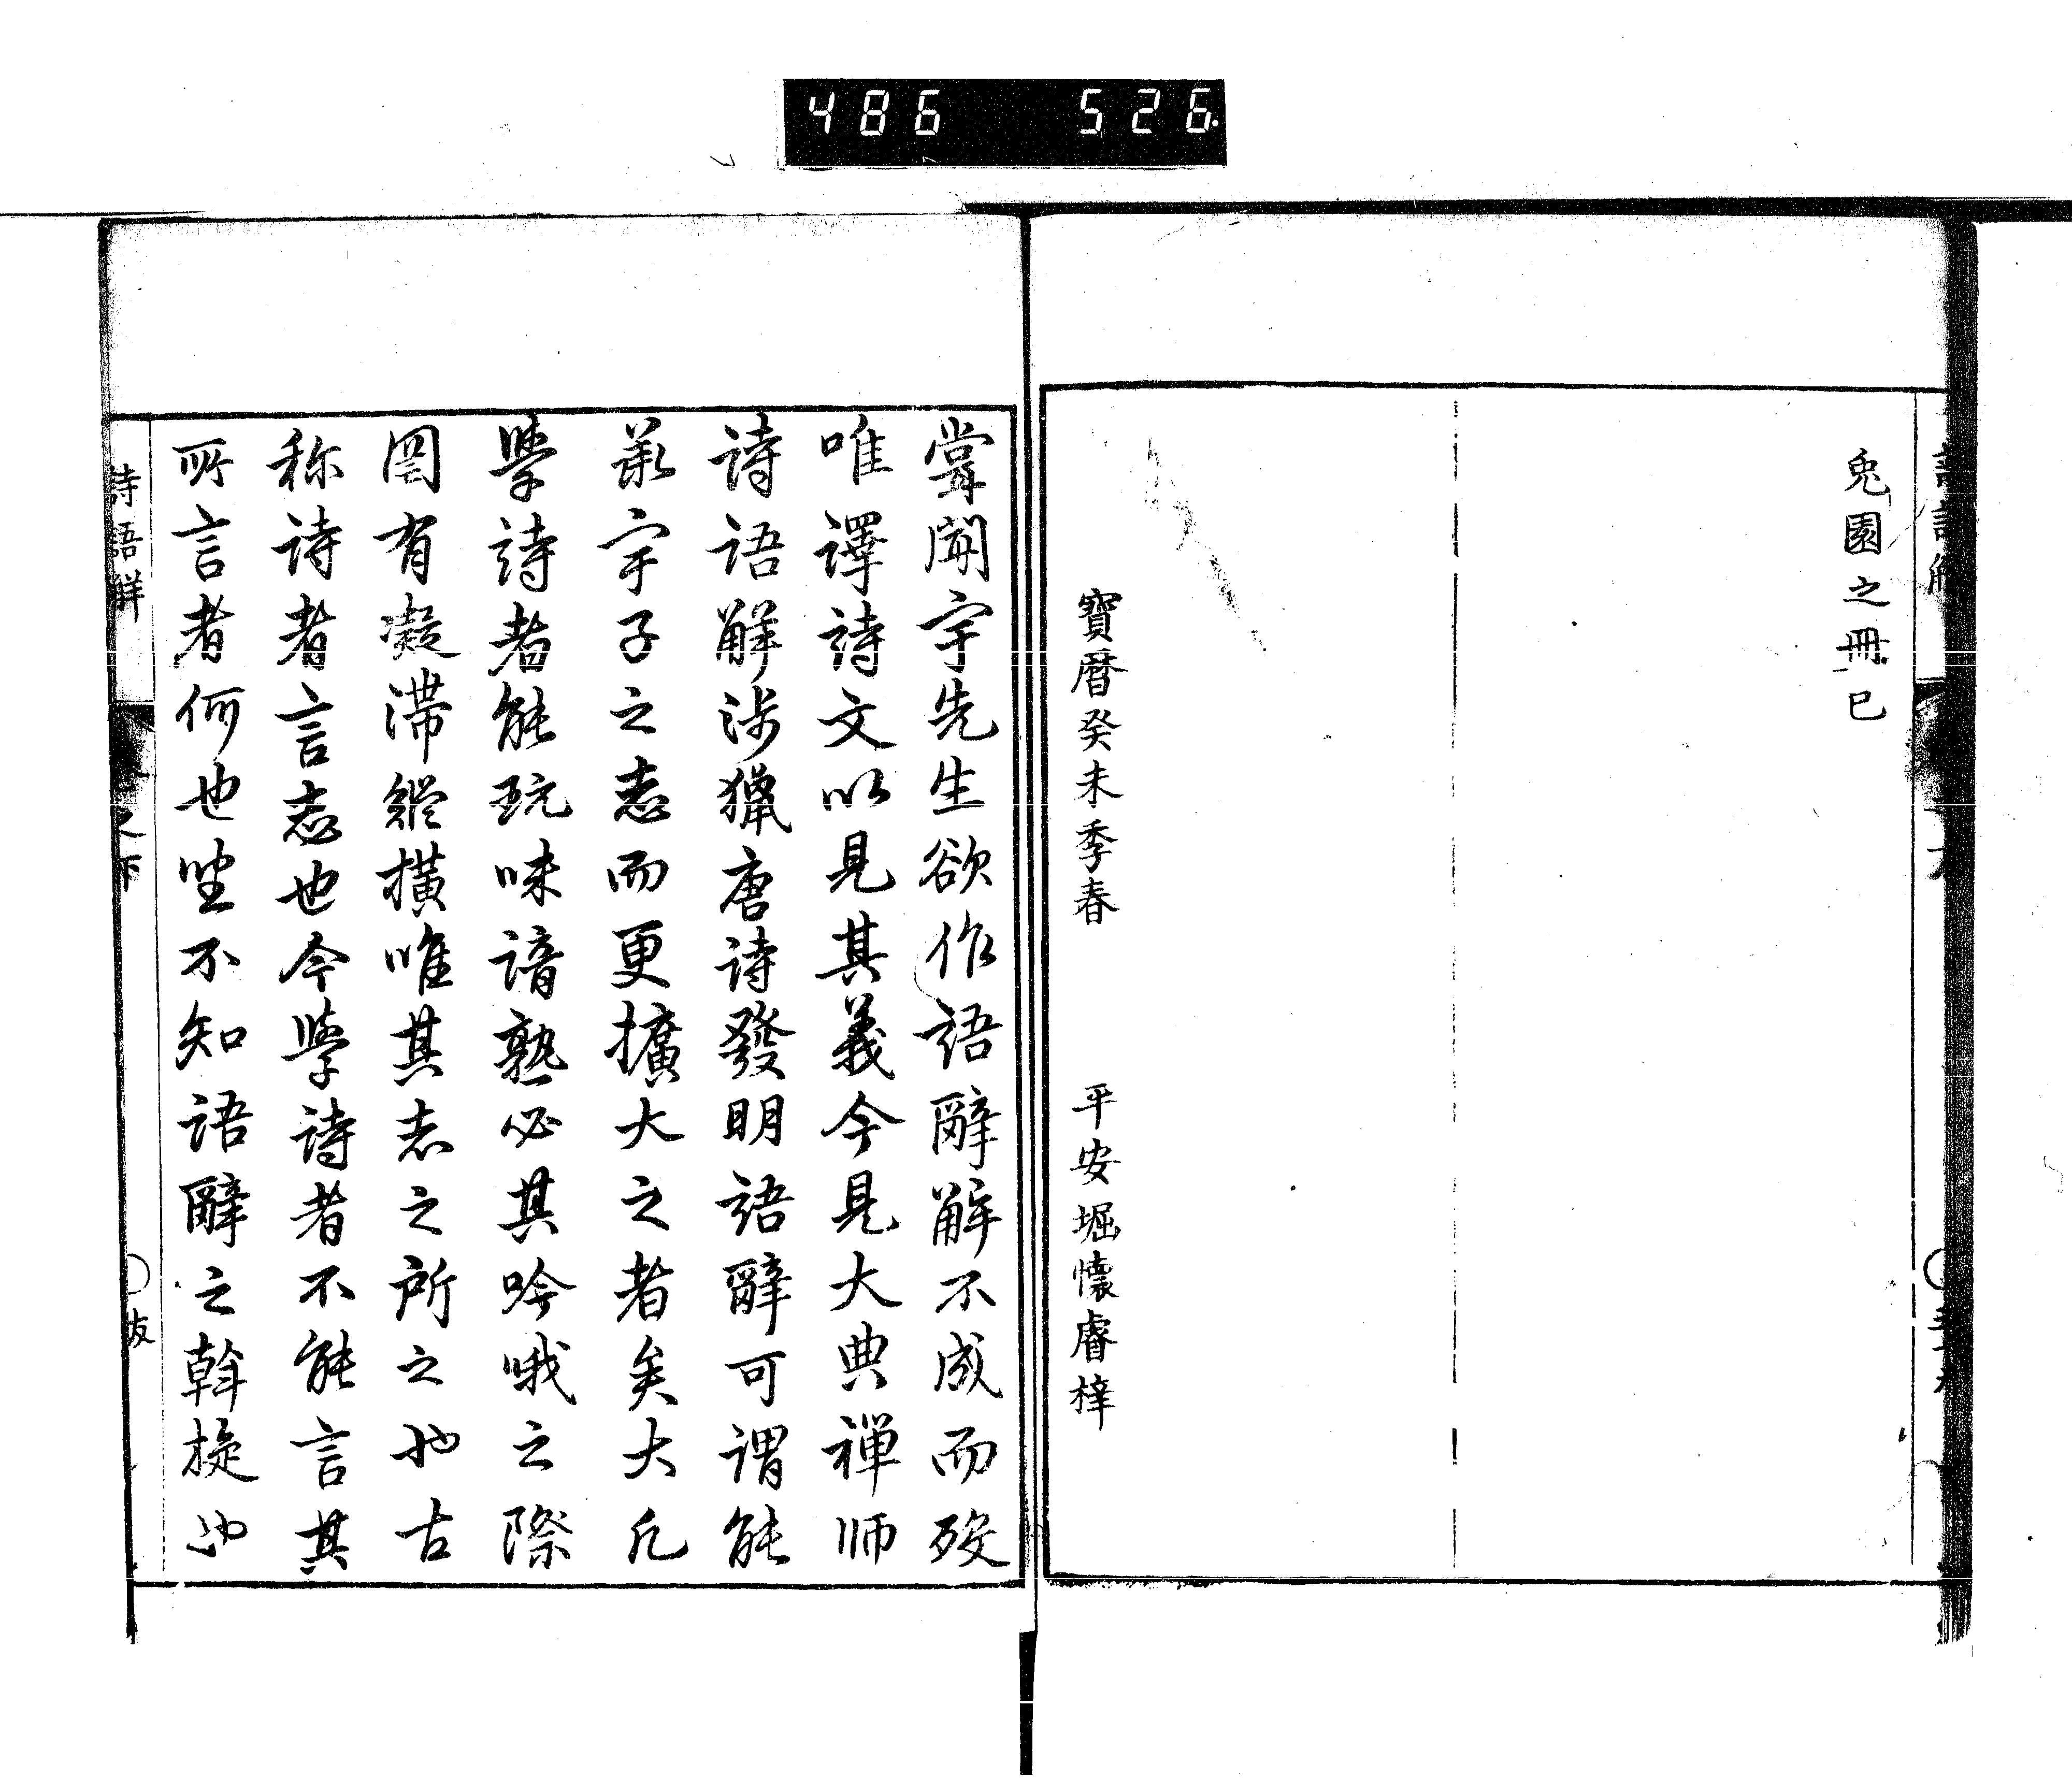 486 526
兎園之冊已
寶暦癸未季春 平安堀懷睿梓
嘗聞宇先生欲作語辭解不成而歿
唯譯詩文以見其義今見大典禅师
詩語解渉獵唐詩發明語辭可謂能
承宇子之志而更擴大之者矣大凡
學詩者能玩味諳熟必其吟哦之際
罔有凝滯縱横唯其志之所之也古
称詩者言志也今學詩者不能言其
所言者何也坐不知語辭之斡旋也
詩語解
之下
跋